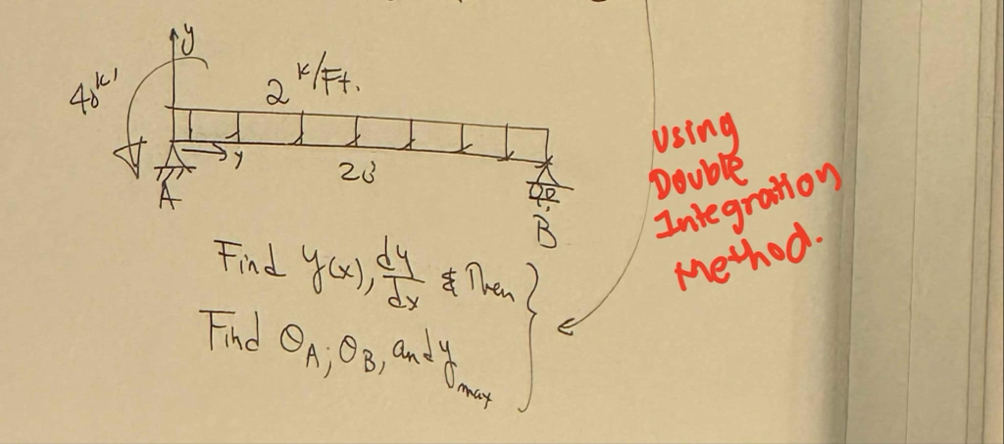 y
40k'
2 k/Ft.
y
20'
A
B
Find y(x), dy/dx & Then
Find θA, θB, and ymax
Using
Double
Integration
Method.